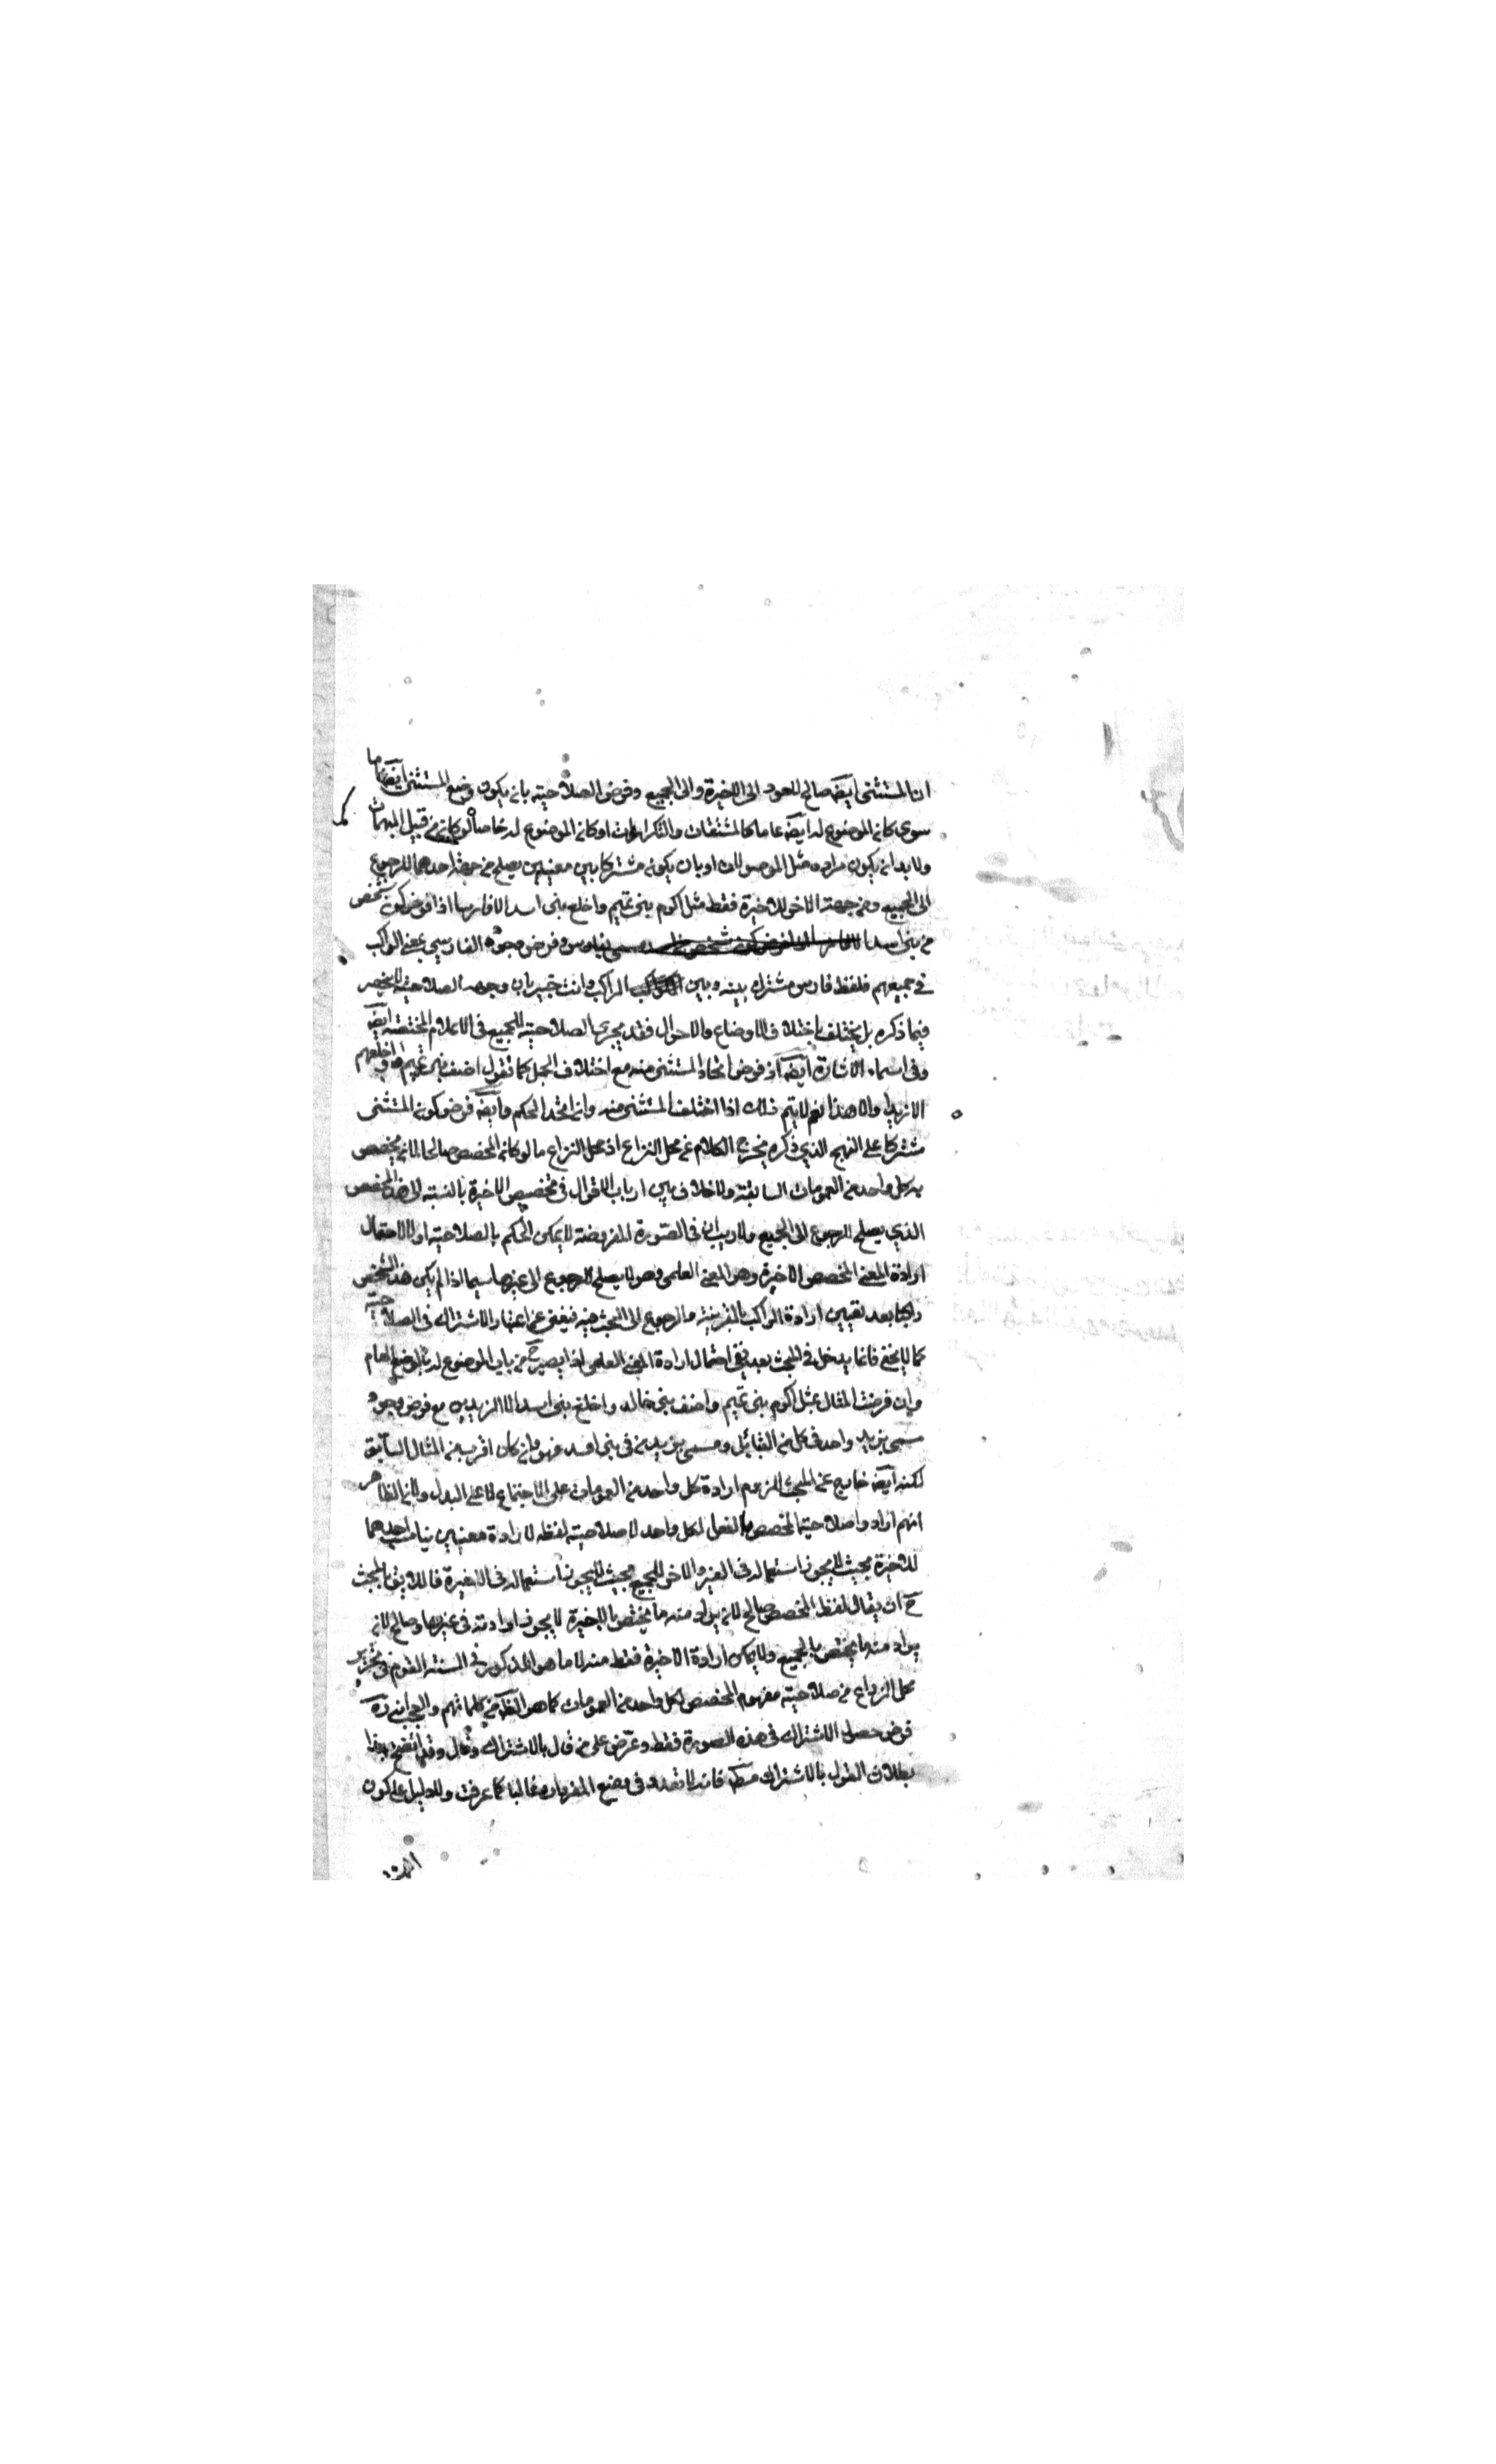 ان المستثنى ايضه صالح للعود الى الاخيرة والى الجميع وفرض الصلاحيته بان يكون وضع المستثنى ايضه عاما
سوى كان الموضوع له ايضه عاما كالمشتقات والنكرات او كان الموضوع له خاصا لو كان من قبيل المبهمات
ولا بد ان يكون مراده مثل الموصولات او بان يكون مشتركا بين معنيين يصلح من جهة احدهما للرجوع
الى الجميع ومن جهة الاخر للاخيرة فقط مثل اكرم بنى تميم واخلع بنى اسد الا فارسا اذا فرض كون شخص
من بنى اسد مسمى بفارس وفرض وجود الفارس بمعنى الراكب
فى جميعهم فلفظ فارس مشترك بينه وبين الراكب وانت خبير بان وجه الصلاحية لا ينحصر
فيما ذكره بل يختلف باختلاف الاوضاع والاحوال فقد يجرى الصلاحيته للجميع فى الاعلام المختصة ايضه
وفى اسماء الاشارة ايضه اذ فرض اتحاد المستثنى منه مع اختلاف الجمل كما تقول اضف بنى تميم واخلعهم
الا زيدا والا هذا نعم لا يتم ذلك اذا اختلف المستثنى منه وان اتحد الحكم وايضه فرض كون المستثنى
مشتركا على النهج الذى ذكره يخرج الكلام عن محل النزاع اذ محل النزاع ما لو كان المخصص صالحا لان يخصص
به كل واحد من العمومات السابقة ولا خلاف بين ارباب الاقوال فى تخصيص الاخيرة بالنسبة الى هذا المخصص
الذى يصلح للرجوع الى الجميع ولا ريب ان فى الصورة المفروضة لا يمكن الحكم بالصلاحيته اولا لاحتمال
ارادة المعنى المخصص الاخيرة وهو المعنى العلمى وهو لا يصلح للرجوع الى غيرها سيما اذا لم يكن هذا الشخص
راكبا بعد تعيين ارادة الراكب بالقرينة والرجوع الى البحث فيه فيغنى عن اعتبار الاشتراك فى الصلاحيته
كما لا يخفى فانما يدخل فى المبحث بعد نفى احتمال ارادة المعنى العلمى اذا يصير ح من باب الموضوع له بالوضع العام
وان فرضت المثال بمثل اكرم بنى تميم واضف بنى خالد واخلع بنى اسد الا الزيدين مع فرض وجود
مسمى بزيد واحد فى كل من القبائل ومسمى بزيدين فى بنى اسد فهو وان كان اقرب من المثال السابق
لكنه ايضه خارج عن المبحث للزوم ارادة كل واحد من العمومات على الاجتماع لا على البدل ولان الظاهر
انهم ارادوا صلاحية المخصص بالفعل لكل واحد لا صلاحيته لفظه لارادة معنيين يناسب احدهما
للاخيرة بحيث لا يجوز استعماله فى الغير والاخر للجميع بحيث لا يجوز استعماله فى الاخيرة فاللايق بالمبحث
ح ان يقال لفظ المخصص صالح لان يراد منه ما يختص بالاخيرة لا يجوز ارادته فى غيرها وصالح لان
يراد منه ما يختص بالجميع ولا يمكن ارادة الاخيرة فقط منه لا ما هو المذكور فى السنة القوم فى تحرير
محل النزاع من صلاحيته مفهوم المخصص لكل واحد من العمومات كما هو الظه من كلماتهم والعجب انه ره
فرض حصول الاشتراك فى هذه الصورة فقط وعرّض على من قال بالاشتراك وقال وقد اتضح بهذا
بطلان القول بالاشتراك مطه فانه لا تعدد فى وضع المفردات غالبا كما عرفت ولا دليل على كون